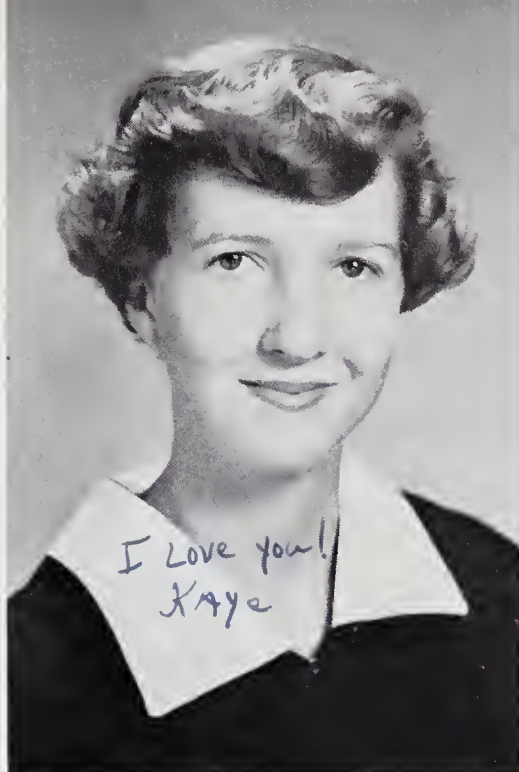 I Love you!
Kaye